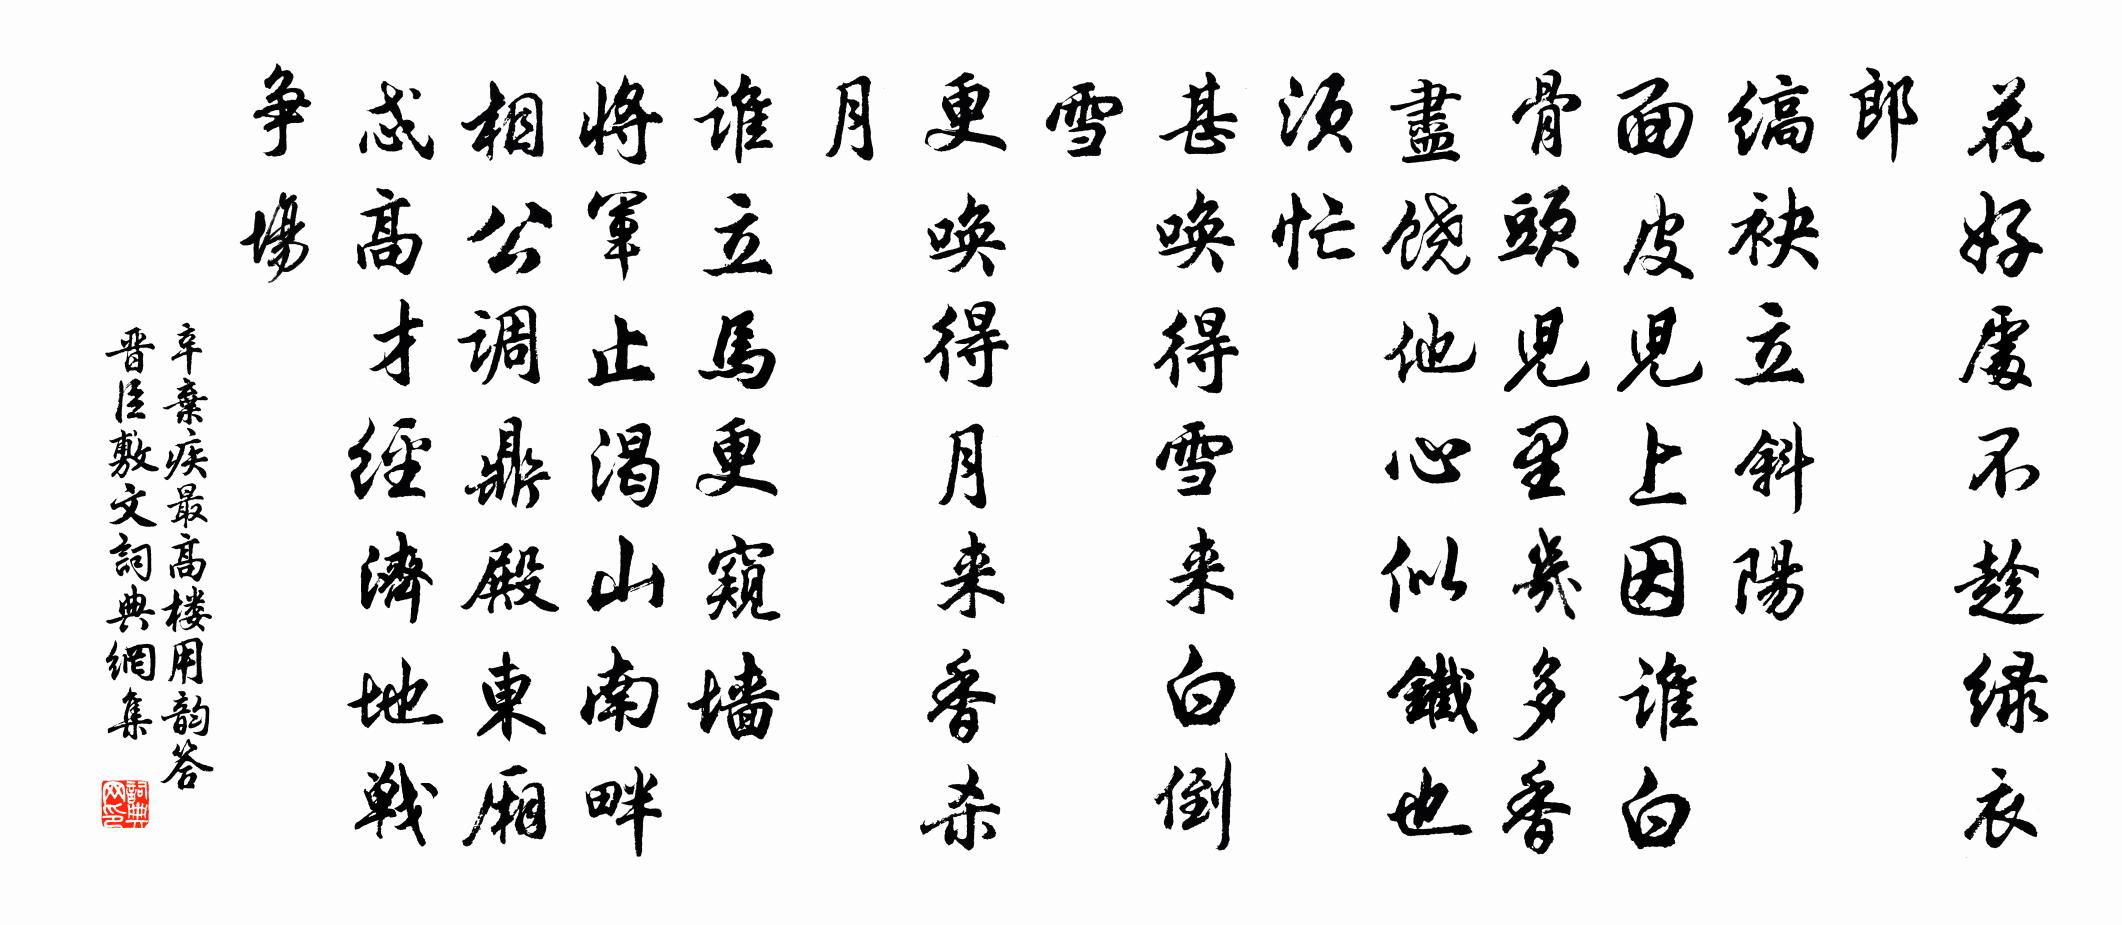 花好處不趁緑衣
郎
縞袂立斜陽
面皮兒上因誰白
骨頭兒里幾多香
盡饒他心似鐵也
須忙
甚唤得雪来白倒
雪
更唤得月来香杀
月
誰立馬更窺墻
將軍止渴山南畔
相公调鼎殿東厢
忒高才經濟地戦
争場
辛棄疾最高楼用韵答
晋臣敷文詞典網集
詞典
网印